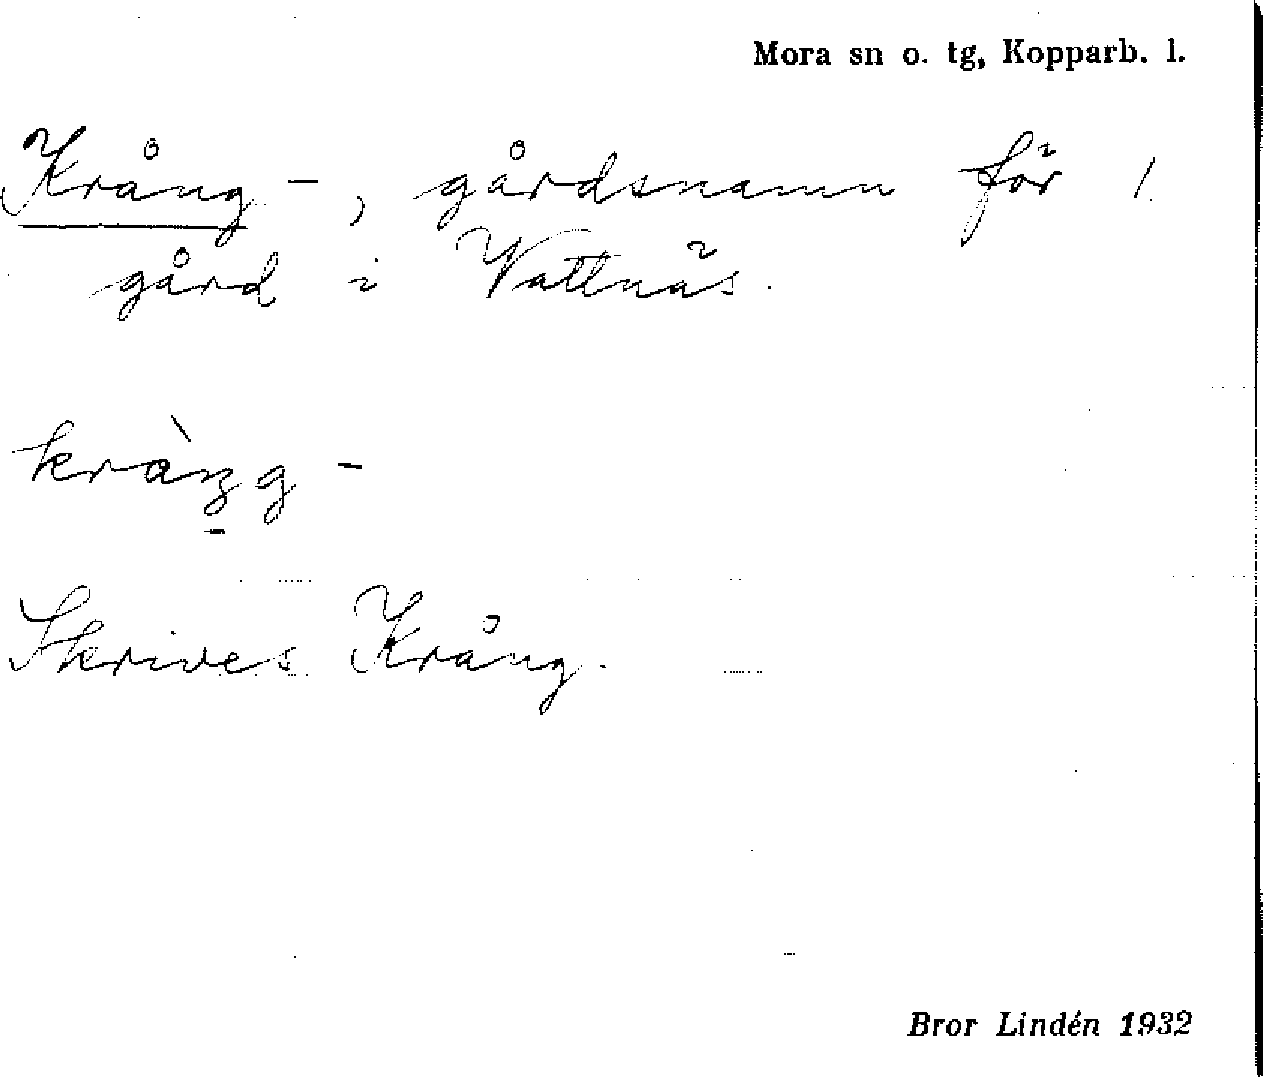 Mora sn o. tg, Kopparb. l.
Krång-, gårdsnamn för 1
gård i Vattnäs.
kràŋg-
Skrives Krång.
Bror Lindén 1932